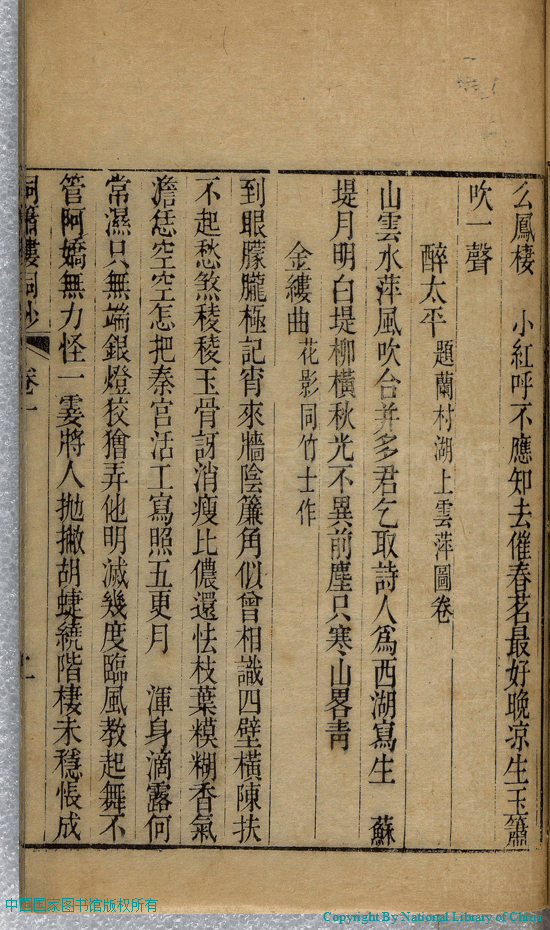 么鳳棲　小紅呼不應知去催春茗最好晚凉生玉簫
吹一聲
醉太平 題蘭村湖上雲萍圖卷
山雲水萍風吹合并多君乞取詩人爲西湖寫生　蘇
堤月明白堤柳橫秋光不異前塵只寒山畧靑
金縷曲 花影同竹士作
到眼朦朧極記宵來牆陰簾角似曾相識四壁橫陳扶
不起愁煞稜稜玉骨訝消瘦比儂還怯枝葉模糊香氣
澹恁空空怎把秦宮活工寫照五更月　渾身滴露何
常濕只無端銀燈狡獪弄他明滅幾度臨風教起舞不
管阿嬌無力怪一霎將人拋撇胡蜨繞階棲未穩悵成
卷一
中国国家图书馆版权所有
Copyright By National Library of China